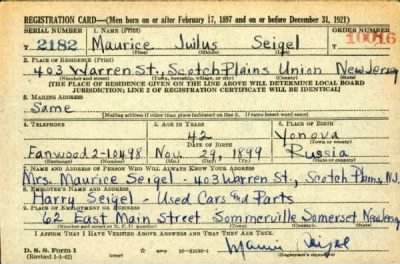 REGISTRATION CARD—(Men born on or after February 17, 1897 and on or before December 31, 1921)
SERIAL NUMBER 1. NAME (Print) ORDER NUMBER
T 2182 Maurice Juilus Seigel 10016
(First) (Middle) (Last)
2. PLACE OF RESIDENCE (Print)
403 Warren St., Scotch Plains Union New Jersey
(Number and street) (Town, township, village, or city) (County) (State)
[THE PLACE OF RESIDENCE GIVEN ON THE LINE ABOVE WILL DETERMINE LOCAL BOARD
JURISDICTION; LINE 2 OF REGISTRATION CERTIFICATE WILL BE IDENTICAL]
3. MAILING ADDRESS
Same
[Mailing address if other than place indicated on line 2. If same insert word same]
4. TELEPHONE 5. AGE IN YEARS 6. PLACE OF BIRTH
42 Yonova
DATE OF BIRTH (Town or county)
Fanwood 2-10498 Nov. 24, 1899 Russia
(Exchange) (Number) (Mo.) (Day) (Yr.) (State or country)
7. NAME AND ADDRESS OF PERSON WHO WILL ALWAYS KNOW YOUR ADDRESS
Mrs. Maurice Seigel - 403 Warren St., Scotch Plains, N.J.
8. EMPLOYER'S NAME AND ADDRESS
Harry Seigel - Used Cars and Parts
9. PLACE OF EMPLOYMENT OR BUSINESS
62 East Main Street Sommerville Somerset New Jersey
(Number and street or R. F. D. number) (Town) (County) (State)
I AFFIRM THAT I HAVE VERIFIED ABOVE ANSWERS AND THAT THEY ARE TRUE.
D. S. S. Form 1
(Revised 1-1-42) (over) GPO 16-21630-1
Seigel
(Registrant's signature)